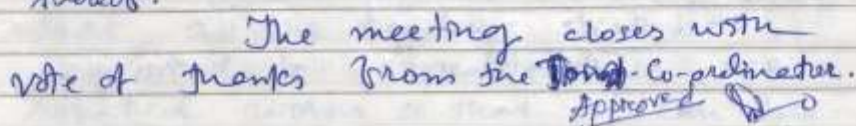 The meeting closes with
vote of thanks from the Co-ordinator.
Approved